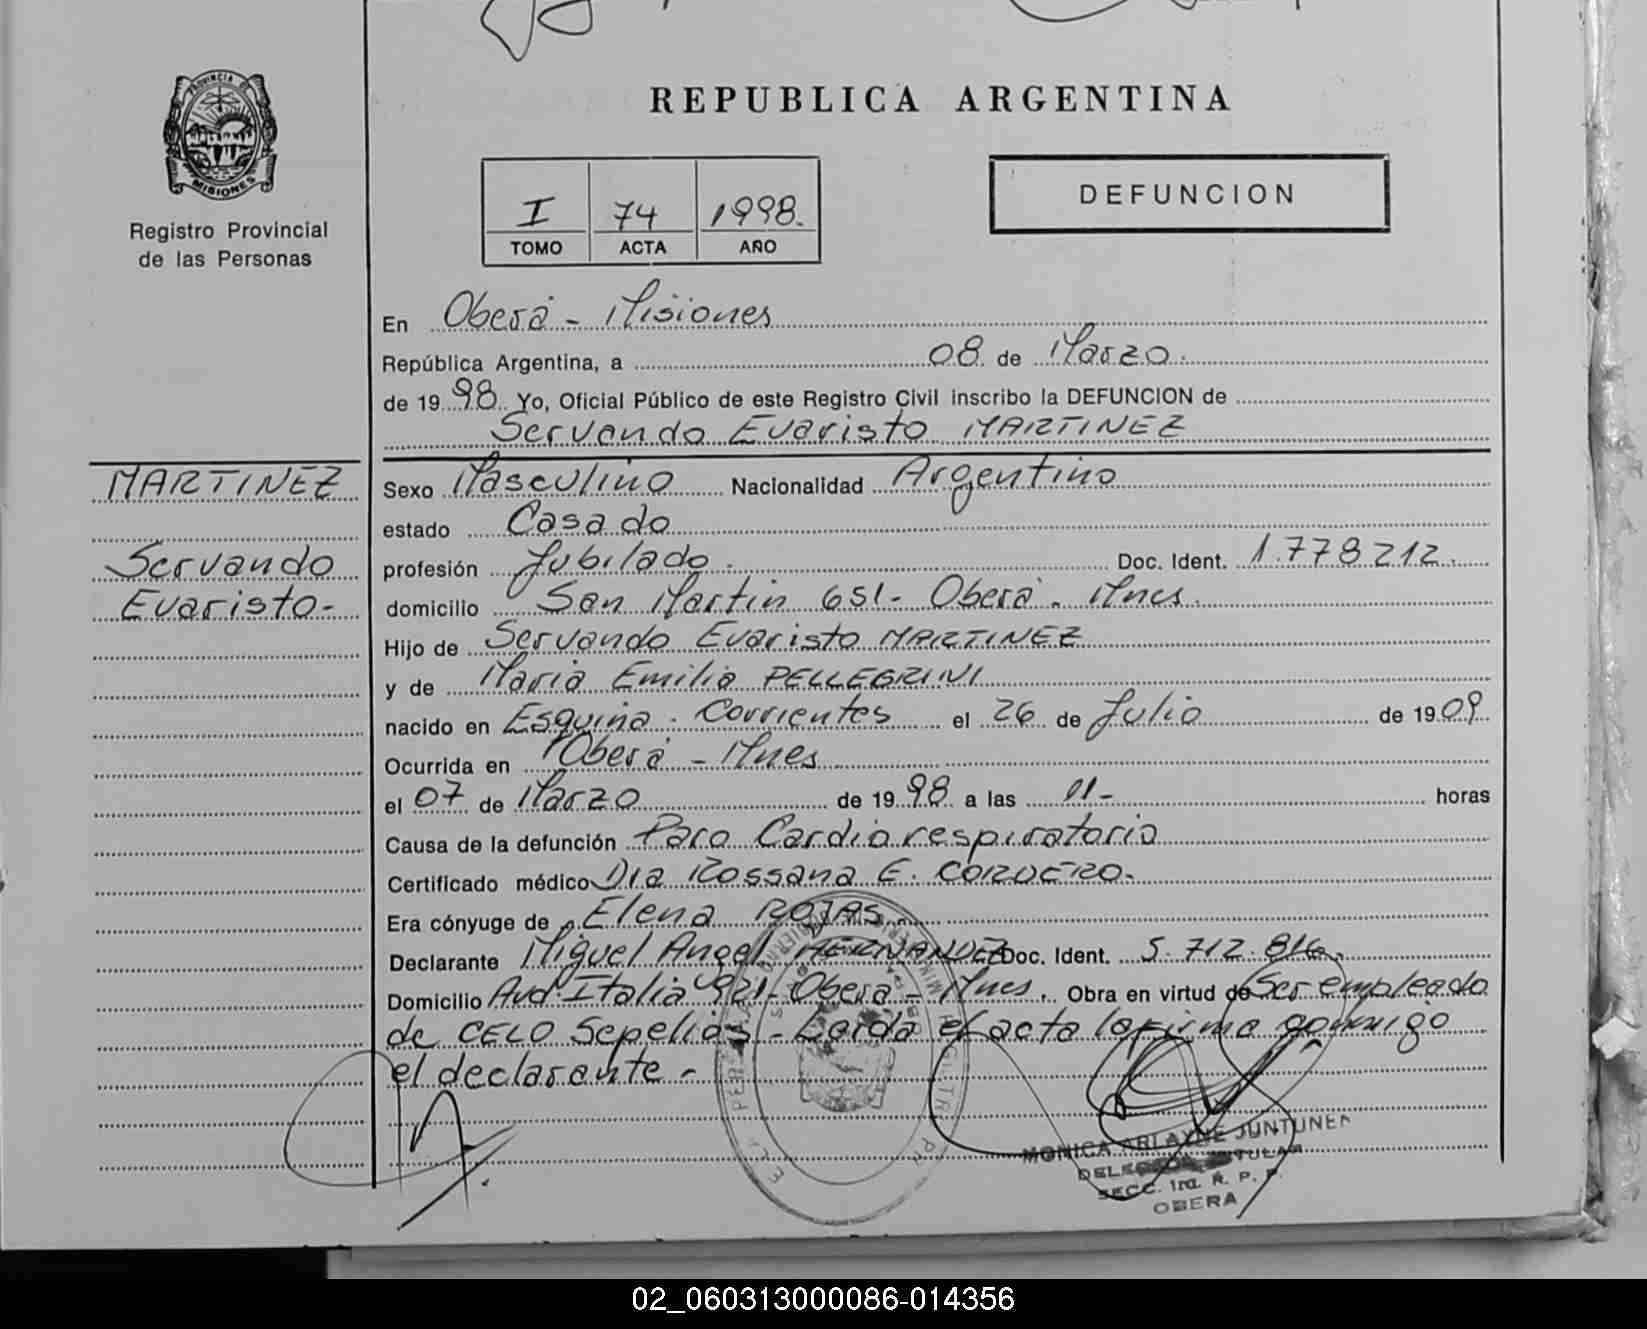 PROVINCIA DE
MISIONES
Registro Provincial
de las Personas
REPUBLICA ARGENTINA
I 74 1998.
TOMO ACTA AÑO
DEFUNCION
En Oberá - Misiones
República Argentina, a 08 de Marzo.
de 19 98 Yo, Oficial Público de este Registro Civil inscribo la DEFUNCION de
Servando Evaristo MARTINEZ
MARTINEZ
Servando
Evaristo-
Sexo Masculino Nacionalidad Argentino
estado Casado
profesión Jubilado. Doc. Ident. 1.778212.
domicilio San Martin 651- Oberá. Mnes.
Hijo de Servando Evaristo MARTINEZ
y de Maria Emilia PELLEGRINI
nacido en Esquina. Corrientes el 26 de Julio de 19 09
Ocurrida en Oberá - Mnes
el 07 de Marzo de 19 98 a las 11- horas
Causa de la defunción Paro Cardiorespiratorio
Certificado médico Dra Rossana E. CORDERO.
Era cónyuge de Elena ROJAS.
Declarante Miguel Angel HERNANDEZ Doc. Ident. 5.712.816
Domicilio Avd. Italia 921- Oberá - Mnes. Obra en virtud de Ser empleado
de CELO Sepelios - Leida el acta la firma conmigo
el declarante -
MONICA ARLAYNE JUNTUNEN
DELEGADA TITULAR
SECC. 1ra. R. P. P.
OBERA
02_060313000086-014356